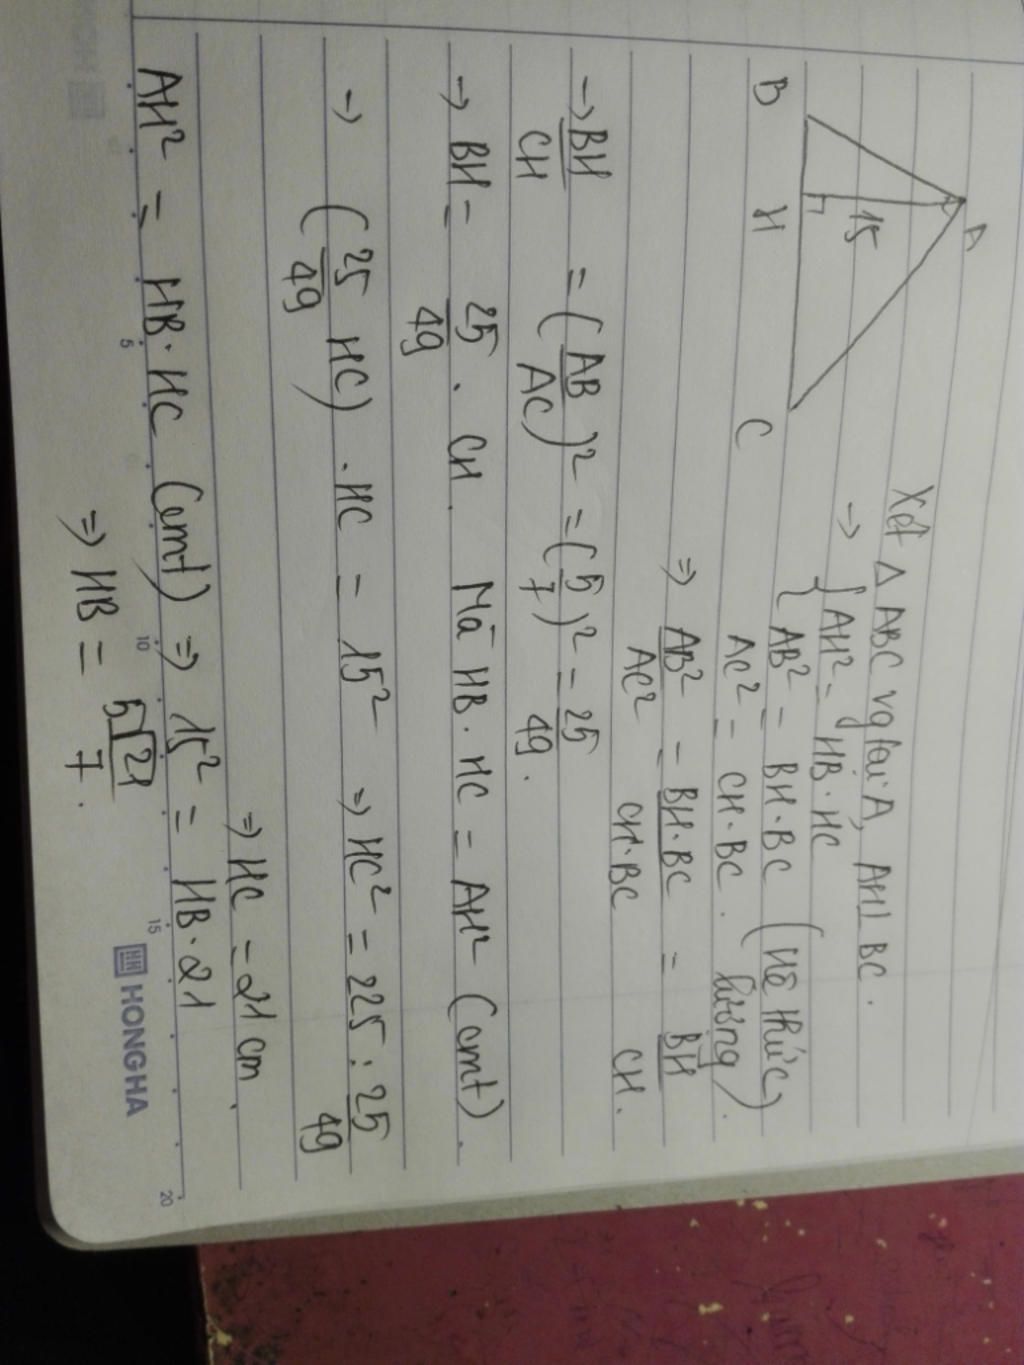 A
B
H
C
15
Xét Δ ABC vg tại A, AH⊥BC.
→ { AH² = HB·HC
AB² = BH·BC (Hệ thức
AC² = CH·BC. lượng).
⇒ AB²/AC² = BH·BC/CH·BC = BH/CH.
→ BH/CH = (AB/AC)² = (5/7)² = 25/49.
→ BH = 25/49 . CH. Mà HB·HC = AH² (cmt).
→ (25/49 HC) · HC = 15² ⇒ HC² = 225 : 25/49
⇒ HC = 21 cm.
AH² = HB·HC (cmt) ⇒ 15² = HB·21
⇒ HB = 7.
5
10
15
20
HONG HA